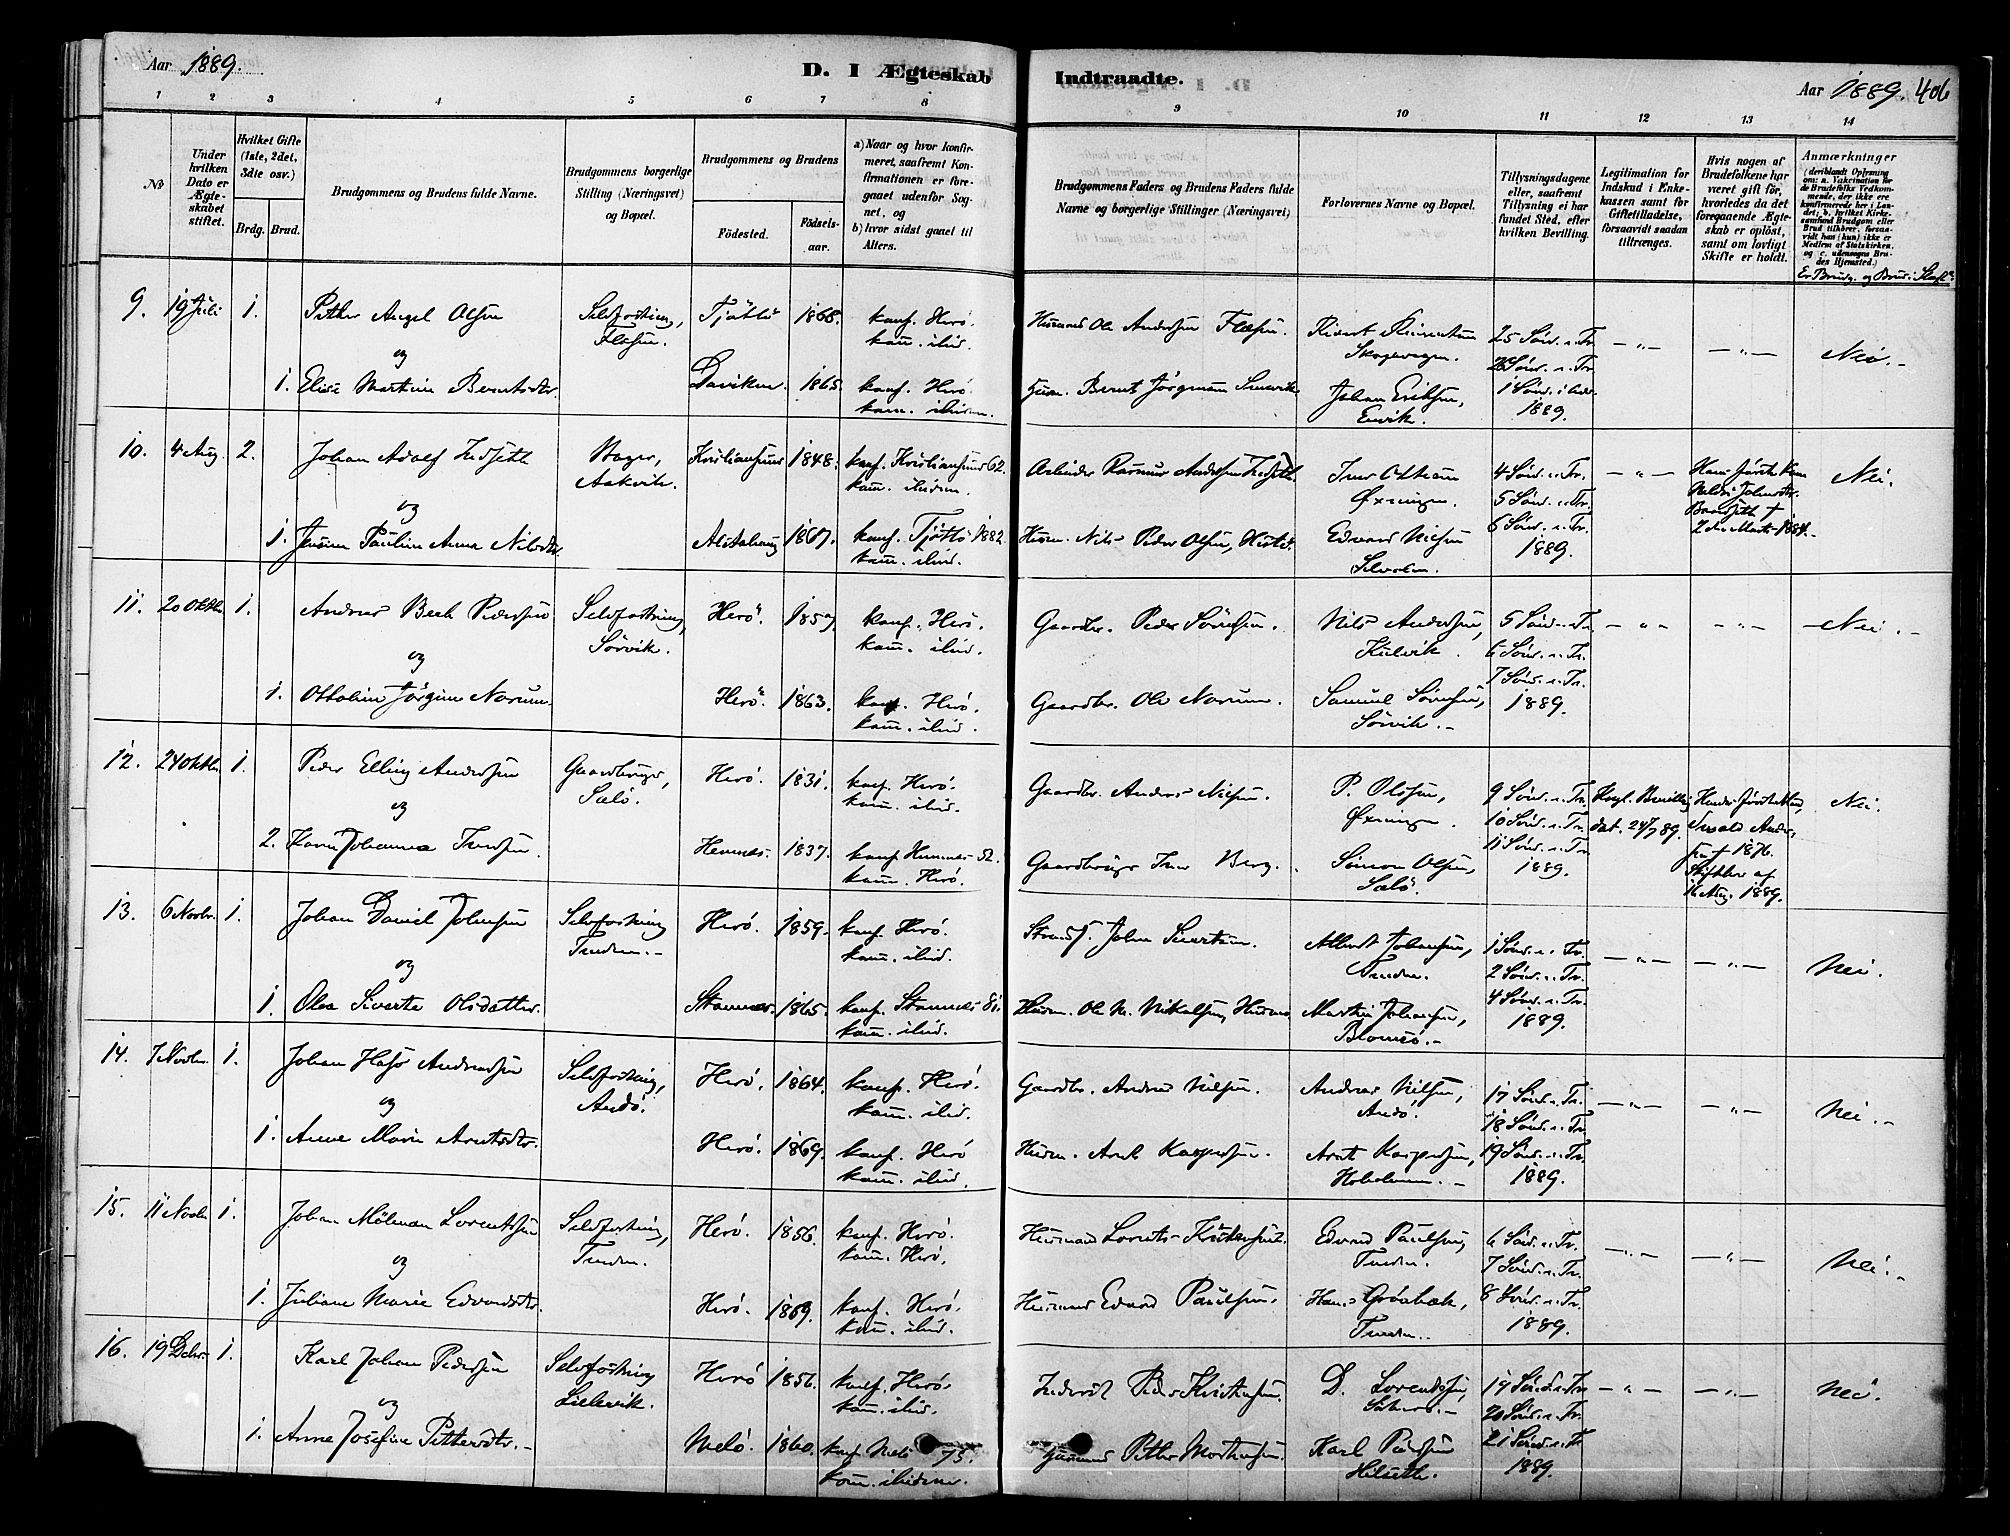 Aar 1889.
D. I Ægteskab
Indtraadte.
Aar 1889. 406
1 2 3 4 5 6 7 8 9 10 11 12 13 14
№
Under hvilken Dato er Ægteskabet stiftet.
Hvilket Gifte (1ste, 2det, 3die osv.)
Brdg. Brud.
Brudgommens og Brudens fulde Navne.
Brudgommens borgerlige Stilling (Næringsvei) og Bopæl.
Brudgommens og Brudens
Fødested.
Fødselsaar.
a) Naar og hvor konfirmeret, saafremt Konfirmationen er foregaaet udenfor Sognet, og
b) hvor sidst gaaet til Alters.
Brudgommens Faders og Brudens Faders fulde Navne og borgerlige Stillinger (Næringsvei)
Forlovernes Navne og Bopæl.
Tillysningsdagene eller, saafremt Tillysning ei har fundet Sted, efter hvilken Bevilling.
Legitimation for Indskud i Enkekassen samt for Giftetilladelse, forsaavidt saadan tiltrænges.
Hvis nogen af Brudefolkene har været gift før, hvorledes da det foregaaende Ægteskab er opløst, samt om lovligt Skifte er holdt.
Anmærkninger
(deriblandt Oplysning om: a. Vakcination for de Brudefolks Vedkommende, der ikke ere konfirmerede her i Landet; b. hvilket Kirkesamfund Brudgom eller Brud tilhører, forsaavidt han (hun) ikke er Medlem af Statskirken, og c. udensogns Brudes Hjemsted.)
Er Brudg. og Brud i Slægt?
9. 19 Juli 1. Petter Angel Olsen Selvfostring, Tjøttø 1868. konf. Herö. kom. ibid. Husmd Ole Andersen Flæsen. 25 Sönd. e. Tr. — " — — " — Nei. —
og
1. Elise Martine Berntsdtr. 1865. konf. Herö. kom. ibidem. Husm. Bernt Jörgensen Johan Eriksen, 26 Sönd. e. Tr. 1 Sönd. i Adv. 1889.
10. 4 Aug. 2. Johan Adolf Bager, Aakvik. Kristiansund 1848. konf. Kristiansund 62. kom. ibidem. Arbeider Rasmus Andersen Øxningen. 4 Sönd. e. Tr. 5 Sönd. e. Tr. — " — 1884. Nei.
og
1. Pauline Anna Nilsdtr. Alstahaug 1867. konf. Tjøttö 1882. kom. ibid. Husm. Nils Peder Olsen, Edvard Nielsen 6 Sönd. e. Tr. 1889.
11. 20 Oktbr. 1. Andreas Beck Pedersen Selvfostring, Sörvik. Herö. 1859. konf. Herö. kom. ibid. Gaardbr. Peder Sörensen. Nils Andersen, 5 Sönd. e. Tr. 6 Sönd. e. Tr. — " — — " — Nei. —
og
1. Ottoline Jörgine Norum. Herö. 1863. konf. Herö. kom. ibid. Gaardbr. Ole Norum. Samuel Sörensen, Sörvik. — 7 Sönd. e. Tr. 1889.
12. 24 Oktbr. 1. Peder Elling Andersen Gaardbruger, Sælö. Herö. 1831. konf. Herö. kom. ibid. Gaardbr. Anders Nilsen. P. Olsen, Øxningen. 9 Sönd. e. Tr. 10 Sönd. e. Tr. Kngl. Bevilling dat. 24/7 89. 1876. 1889. Nei.
og
2. Karen Johanna Hemnes. 1837. konf. Hemnes 52. kom. Herö. Gaardbruger Iver Berg. Simon Olsen, Sælö. 11 Sönd. e. Tr. 1889.
13. 6 Novbr. 1. Johan Daniel Johnsen Selvfostring Tenden. — Herö. 1859. konf. Herö. kom. ibid. John Sivertsen. Albert Johansen, Tenden. 1 Sönd. e. Tr. 2 Sönd. e. Tr. — " — — " — Nei.
og
1. Olea Siverta Olsdatter. Stamnes. 1865. konf. Stamnes 81. kom. ibid. Husm. Ole N. Nikolsen, Martin Johansen, Blomsö. — 4 Sönd. e. Tr. 1889.
14. 7 Novbr. 1. Johan Andreassen Selvfostring, Andö. Herö. 1864. konf. Herö. kom. ibid. Gaardbr. Andreas Nilsen. Andreas Nilsen, Andö. 17 Sönd. e. Tr. 18 Sönd. e. Tr. — " — — " — Nei. —
og
1. Anne Marie Arntsdtr. Herö. 1869. konf. Herö kom. ibid. Husm. Arnt Kaspersen. Arnt Kaspersen, 19 Sönd. e. Tr. 1889.
15. 11 Novbr. 1. Johan Mölman Lorentsen Selvfostring, Tenden. Herö. 1856. konf. Herö. kom. Herö. Husmand Lorents Kristensen. Edvard Paulsen, Tenden. 6 Sönd. e. Tr. 7 Sönd. e. Tr. — " — — " — Nei. —
og
1. Juliane Marie Edvardsdtr. Herö. 1869. konf. Herö. kom. ibid. Husmand Edvard Paulsen. Hans Grönbæk, Tenden. 8 Sönd. e. Tr. 1889.
16. 19 Decbr. 1. Karl Johan Pedersen Selvfostring Lillevik. Herö 1856. konf. Herö. kom. ibid. Peder Kristensen. D. Lorentsen, 19 Sönd. e. Tr. 20 Sönd. e. Tr. — " — — " — Nei.
og
1. Anne Josefine Pettersdtr. — Nesö. 1860. konf. Nesö 75. kom. ibidem. Husmand Petter Mortensen. Karl Pedersen 21 Sönd. e. Tr 1889.